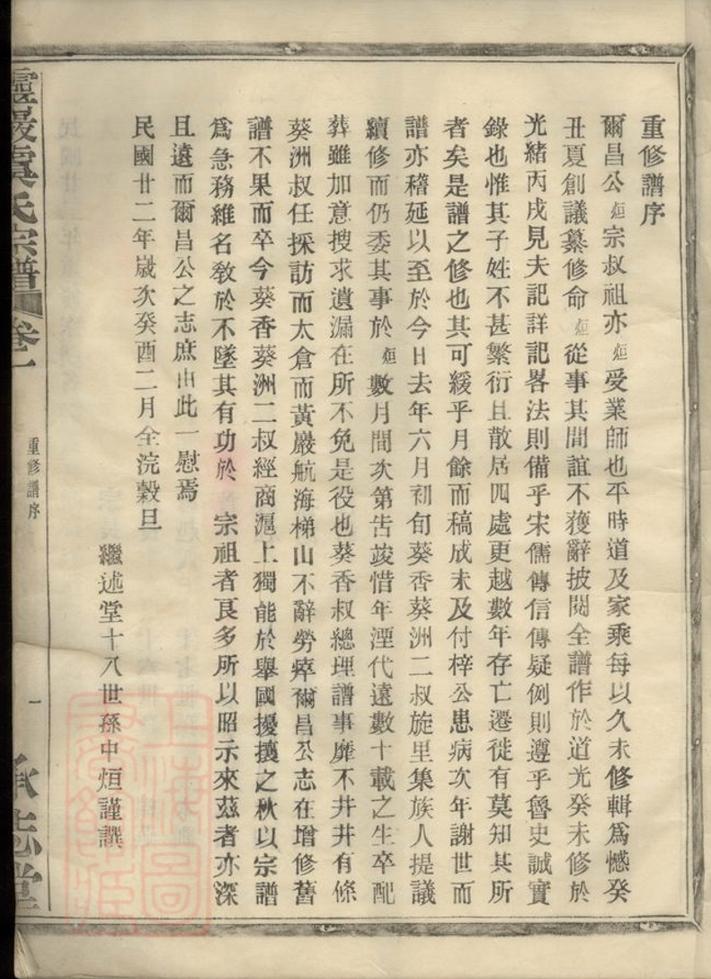 重修譜序
爾昌公烜宗叔祖亦烜受業師也平時道及家乘每以久未修輯爲憾癸
丑夏創議纂修命烜從事其間誼不獲辭披閱全譜作於道光癸未修於
光緒丙戌見夫記詳記畧法則備乎宋儒傳信傳疑例則遵乎魯史誠實
錄也惟其子姓不甚繁衍且散居四處更越數年存亡遷徙有莫知其所
者矣是譜之修也其可緩乎月餘而稿成未及付梓公患病次年謝世而
譜亦稽延以至於今日去年六月初旬葵香葵洲二叔旋里集族人提議
續修而仍委其事於烜數月間次第告竣惜年湮代遠數十載之生卒配
葬雖加意搜求遺漏在所不免是役也葵香叔總理譜事靡不井井有條
葵洲叔任採訪而太倉而黃巖航海梯山不辭勞瘁爾昌公志在增修舊
譜不果而卒今葵香葵洲二叔經商滬上獨能於舉國擾攘之秋以宗譜
爲急務維名教於不墜其有功於 宗祖者良多所以昭示來茲者亦深
且遠而爾昌公之志庶由此一慰焉
民國廿二年歲次癸酉二月全浣穀旦
繼述堂十八世孫中烜謹譔
靈巖虞氏宗譜 卷一
重修譜序
一
承志堂